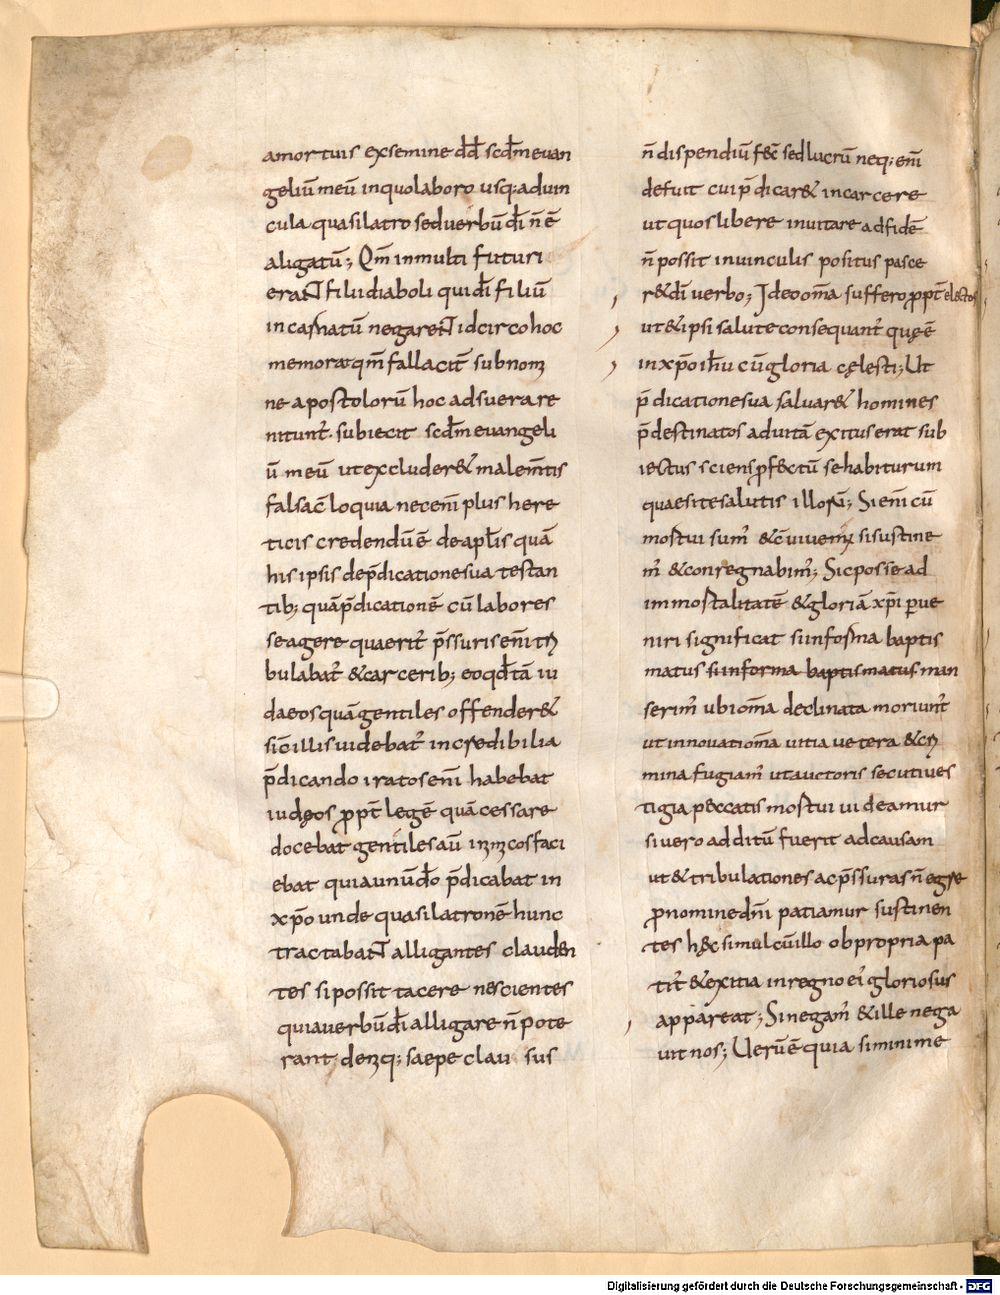 amortuis exsemine dd̄ scd̄m euan
geliū meū inquolaboro usq; aduin
cula quasilatro sed uerbū dī n̄ ē
aligatū; Qm̄ inmulti futuri
erant filii diaboli qui dī filiū
incarnatū negarent idcirco hoc
memorat qm̄ fallacit̄ subnom
ne apostolorū hoc adsuerare
nitunt̄. subiecit scd̄m euangeli
ū meū ut excluder& malem̄tis
falsac̄ loquia necem̄ plus here
ticis credendū ē de apl̄is quā
his ipsis dep̄dicatione sua testan
tib; quā p̄dicationē cū labore s
e agere quaerit̄ p̄ssuris en̄i tri
bulabat̄ & carcerib; eo qd̄ tā iu
daeos quā gentiles offender&
sic̄ illis uidebat̄ incredibilia
p̄dicando iratos en̄i habebat
iudęos ꝓpt̄ legē quā cessare
docebat gentiles aū inimicos faci
ebat quia unū dō p̄dicabat in
xp̄o unde quasi latronē hunc
tractabant alligantes clauden
tes si possit tacere nescientes
quia uerbū dī alligare n̄ pote
rant. deniq; saepe clau sus
n̄ dispendiū fec̄ sed lucrū neq; en̄i
defuit cui p̄dicar& incarcere
ut quos libere inuitare ad fidē
n̄ possit inuinculis positus pasce
r& dī uerbo; Ideo om̄a suffero ꝓpt̄ electos
ut & ipsi salute consequant̄ quę ē
in xp̄o ih̄u cū gloria cęlesti; Ut
p̄dicatione sua saluar& homines
p̄destinatos aduitā exitus erat sub
iectus sciens ꝓfectū se habiturum
quaesite salutis illorū; Si en̄i cū
mortui sum̄ & c̄uiuem; si sustine
m̄ & conregnabim̄; Sic posse ad
immortalitatē & gloriā xp̄i ꝑue
niri significat si informa baptis
matus si informa baptismatus man
serim̄ ubi om̄a declinata moriunt̄
ut innouatiom̄a uitia uetera & cri
mina fugiam̄ ut auctoris secuti ues
tigia peccatis mortui uideamur
si uero additū fuerit ad causam
ut & tribulationes ac p̄ssuras n̄ egre
ꝓ nomine dn̄i patiamur sustinen
tes hęc simul c̄uillo ob propria pa
tit̄ & exitia in regno ei̓ gloriosus
appareat; Si negam̄ & ille nega
uit nos; Uerū ē quia si minime
Digitalisierung gefördert durch die Deutsche Forschungsgemeinschaft - DFG